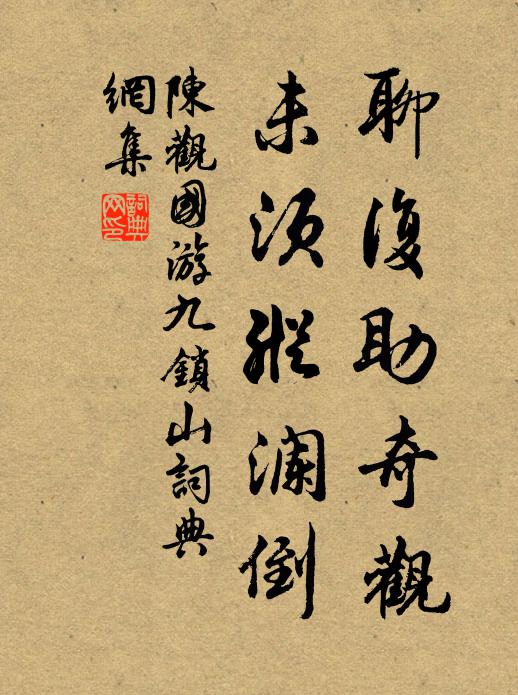 聊復助奇觀
未須縱瀾倒
陳觀國游九鎖山詞典
網集
詞典網印